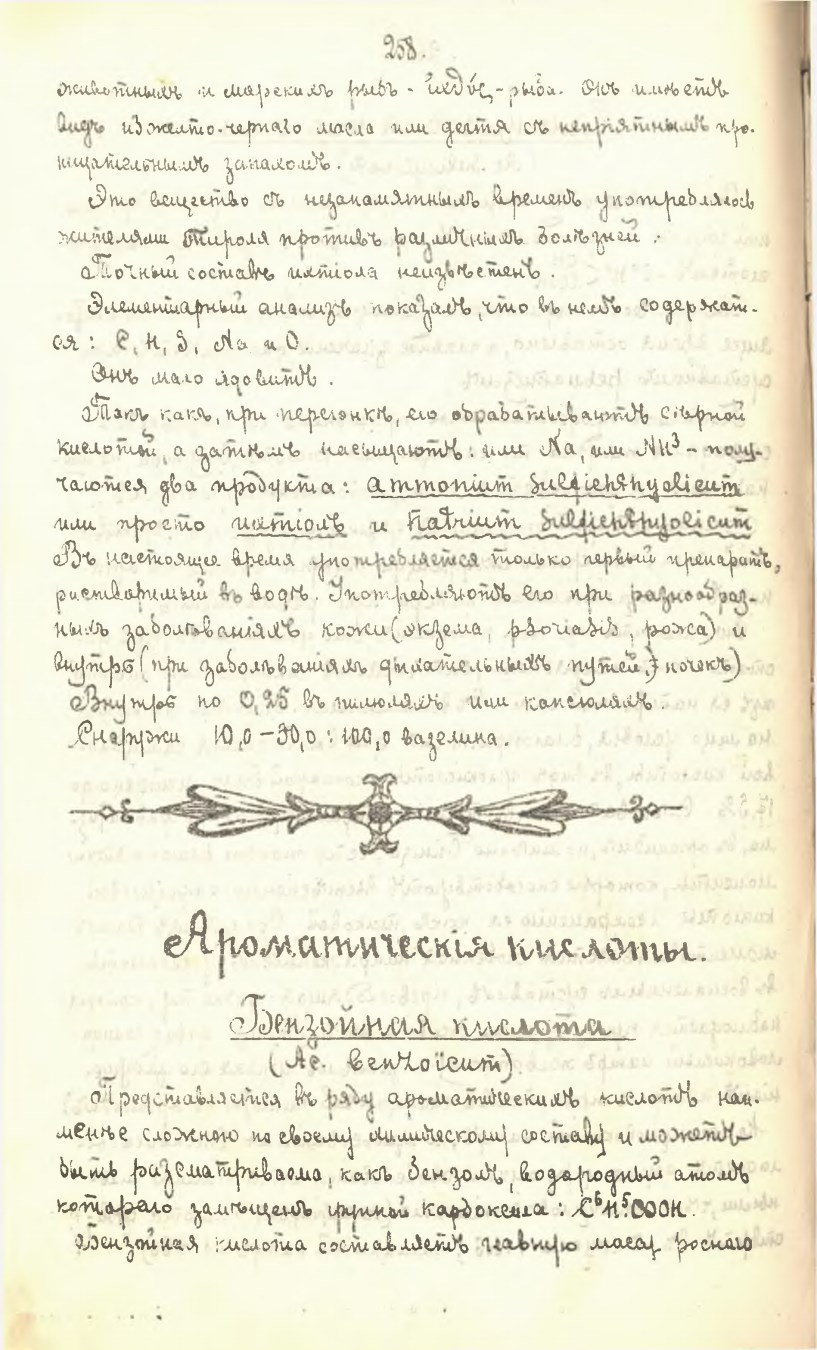 258.
животныхъ и морскихъ рыбъ - ἰχθύς - рыба. Онъ имѣетъ
видъ изжелто-чернаго масла или дегтя съ непріятнымъ про-
ницательнымъ запахомъ.
Это вещество съ незапамятныхъ временъ употреблялось
жителями Тироля противъ различныхъ болѣзней.
Точный составъ ихтіола неизвѣстенъ.
Элементарный анализъ показалъ, что въ немъ содержат-
ся: C, H, S, Na и O.
Онъ мало ядовитъ.
Такъ какъ, при перегонкѣ, его обрабатываютъ сѣрной
кислотой, а затѣмъ насыщаютъ: или Na, или NH³ - полу-
чаются два продукта: ammonium sulfichthyolicum
или просто ихтіолъ и natrium sulfichthyolicum
Въ настоящее время употребляется только первый препаратъ,
растворимый въ водѣ. Употребляютъ его при разнообраз-
ныхъ заболѣваніяхъ кожи (экзема, psoriasis, рожа) и
внутрь (при заболѣваніяхъ дыхательныхъ путей, почекъ)
Внутрь по 0,25 въ пилюляхъ или капсюляхъ.
Снаружи 10,0 - 30,0 : 100,0 вазелина.
Ароматическія кислоты.
Бензойная кислота
(Ac. benzoïcum).
Представляется въ ряду ароматическихъ кислотъ наи-
менѣе сложною по своему химическому составу и можетъ
быть разсматриваема, какъ бензолъ, водородный атомъ
котораго замѣщенъ группой карбоксила: C⁶H⁵.COOH.
Бензойная кислота составляетъ главную массу роснаго